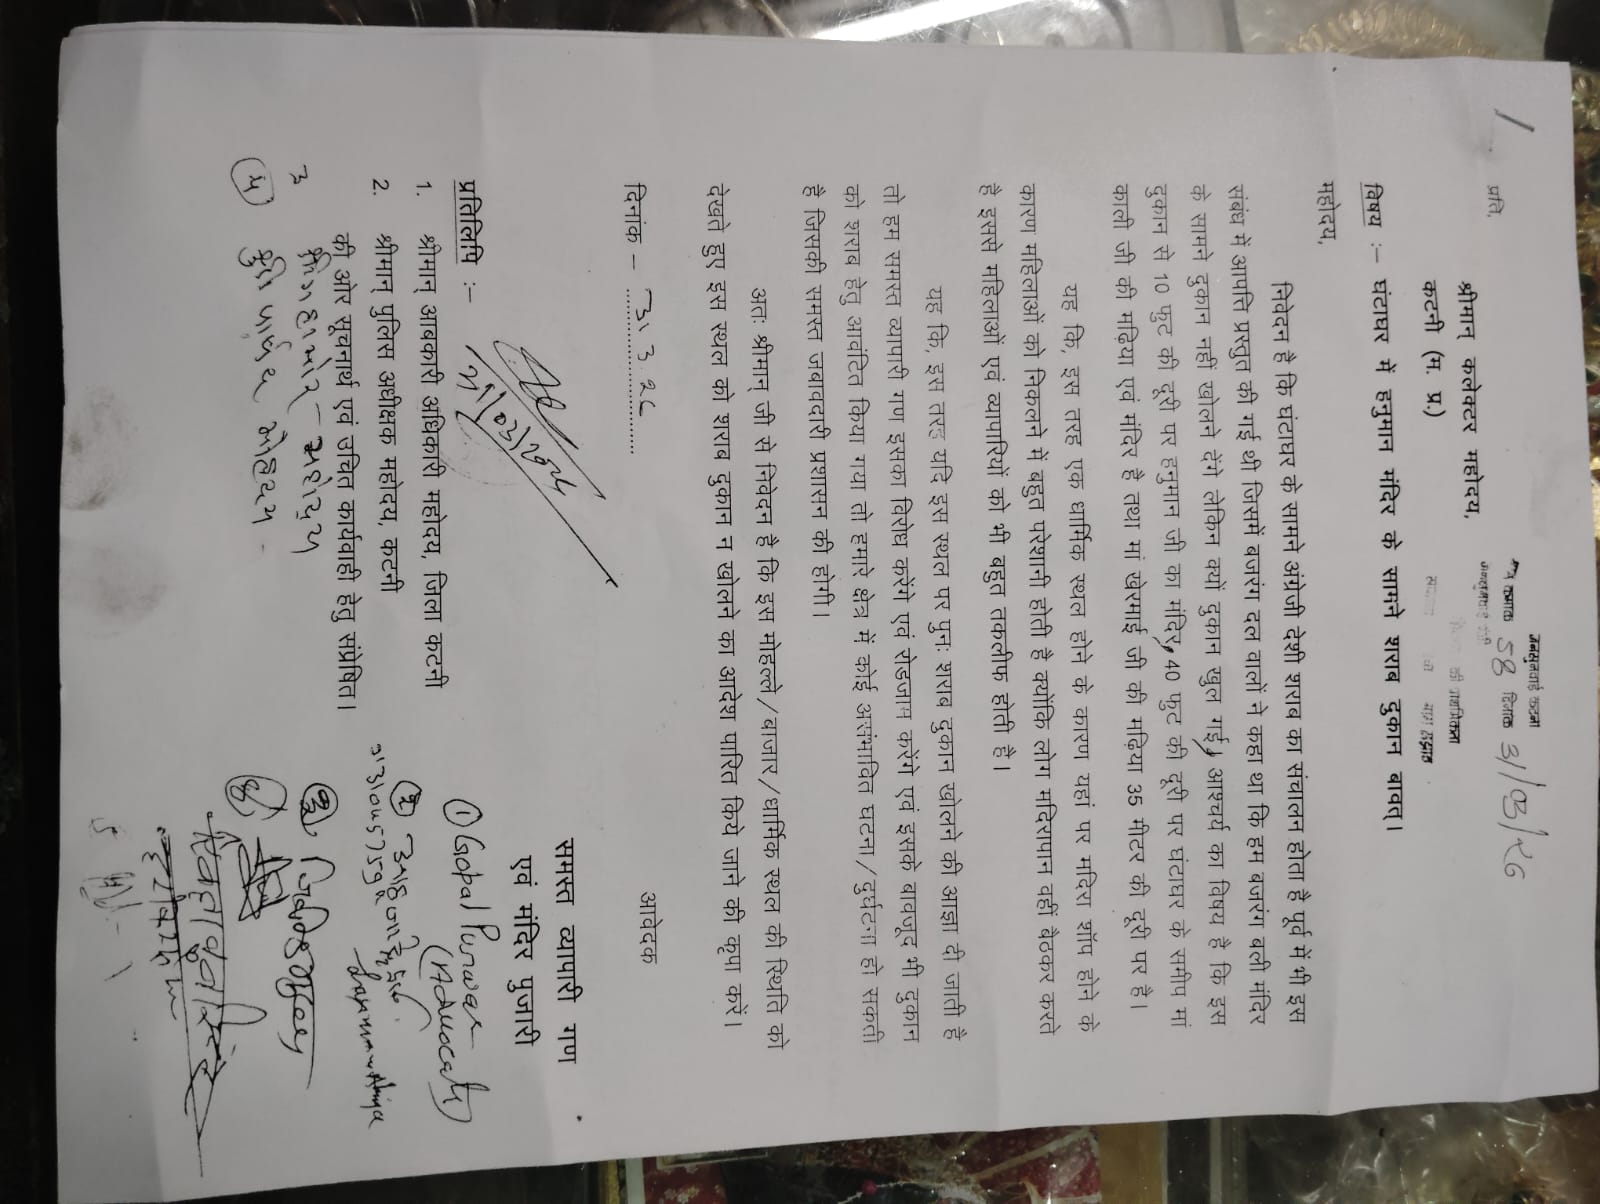 प्रति,
श्रीमान् कलेक्टर महोदय,
कटनी (म. प्र.)
जनसुनवाई कटनी
58 दिनांक 31/03/26
विषय :– घंटाघर में हनुमान मंदिर के सामने शराब दुकान बावत्।
महोदय,
निवेदन है कि घंटाघर के सामने अंग्रेजी देशी शराब का संचालन होता है पूर्व में भी इस
संबंध में आपत्ति प्रस्तुत की गई थी जिसमें बजरंग दल वालों ने कहा था कि हम बजरंग बली मंदिर
के सामने दुकान नहीं खोलने देंगे लेकिन क्यों दुकान खुल गई, आश्चर्य का विषय है कि इस
दुकान से 10 फुट की दूरी पर हनुमान जी का मंदिर, 40 फुट की दूरी पर घंटाघर के समीप मां
काली जी की मढ़िया एवं मंदिर है तथा मां खेरमाई जी की मढ़िया 35 मीटर की दूरी पर है।
यह कि, इस तरह एक धार्मिक स्थल होने के कारण यहां पर मदिरा शॉप होने के
कारण महिलाओं को निकलने में बहुत परेशानी होती है क्योंकि लोग मदिरापान वहीं बैठकर करते
है इससे महिलाओं एवं व्यापारियों को भी बहुत तकलीफ होती है।
यह कि, इस तरह यदि इस स्थल पर पुनः शराब दुकान खोलने की आज्ञा दी जाती है
तो हम समस्त व्यापारी गण इसका विरोध करेंगे एवं रोडजाम करेंगे एवं इसके बावजूद भी दुकान
को शराब हेतु आवंटित किया गया तो हमारे क्षेत्र में कोई असंभावित घटना/दुर्घटना हो सकती
है जिसकी समस्त जवाबदारी प्रशासन की होगी।
अतः श्रीमान् जी से निवेदन है कि इस मोहल्ले/बाजार/धार्मिक स्थल की स्थिति को
देखते हुए इस स्थल को शराब दुकान न खोलने का आदेश पारित किये जाने की कृपा करें।
दिनांक – 31.3.26
आवेदक
समस्त व्यापारी गण
एवं मंदिर पुजारी
प्रतिलिपि :–
1. श्रीमान् आबकारी अधिकारी महोदय, जिला कटनी
2. श्रीमान् पुलिस अधीक्षक महोदय, कटनी
की ओर सूचनार्थ एवं उचित कार्यवाही हेतु संप्रेषित।
3 श्री महापौर महोदय
4 श्री पार्षद महोदय
① Gopal Purwar
(Advocate)
②
③
④